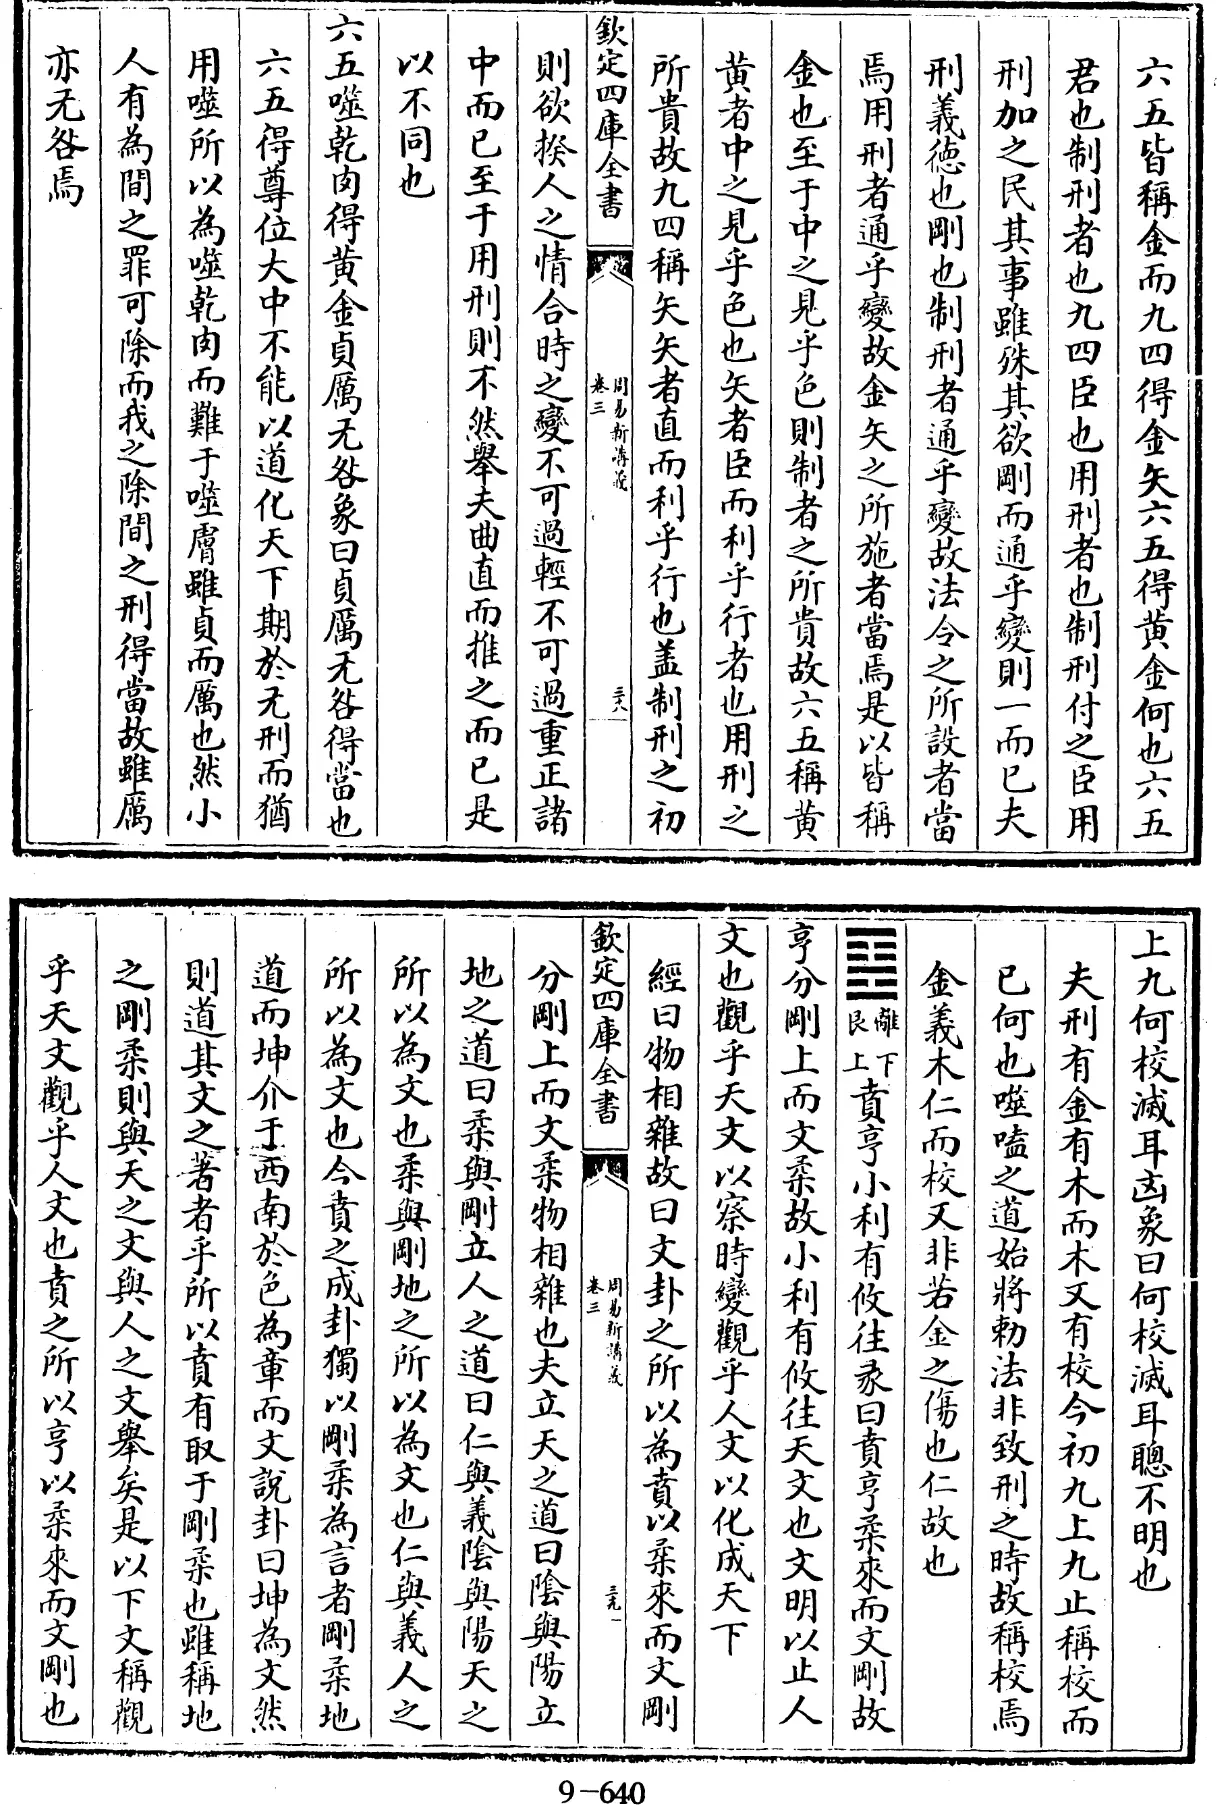 六五皆稱金而九四得金矢六五得黄金何也六五
君也制刑者也九四臣也用刑者也制刑付之臣用
刑加之民其事雖殊其欲剛而通乎變則一而已夫
刑義德也剛也制刑者通乎變故法令之所設者當
焉用刑者通乎變故金矢之所施者當焉是以皆稱
金也至于中之見乎色則制者之所貴故六五稱黄
黄者中之見乎色也矢者臣而利乎行者也用刑之
所貴故九四稱矢矢者直而利乎行也盖制刑之初
欽定四庫全書
周易新講義
卷三
三十八
則欲揆人之情合時之變不可過輕不可過重正諸
中而已至于用刑則不然舉夫曲直而推之而已是
以不同也
六五噬乾肉得黄金貞厲无咎象曰貞厲无咎得當也
六五得尊位大中不能以道化天下期於无刑而猶
用噬所以為噬乾肉而難于噬膚雖貞而厲也然小
人有為間之罪可除而我之除間之刑得當故雖厲
亦无咎焉
上九何校滅耳凶象曰何校滅耳聰不明也
夫刑有金有木而木又有校今初九上九止稱校而
已何也噬嗑之道始將勑法非致刑之時故稱校焉
金義木仁而校又非若金之傷也仁故也
䷕離下艮上賁亨小利有攸往彖曰賁亨柔來而文剛故
亨分剛上而文柔故小利有攸往天文也文明以止人
文也觀乎天文以察時變觀乎人文以化成天下
經曰物相雜故曰文卦之所以為賁以柔來而文剛
欽定四庫全書
周易新講義
卷三
三十九
分剛上而文柔物相雜也夫立天之道曰陰與陽立
地之道曰柔與剛立人之道曰仁與義陰與陽天之
所以為文也柔與剛地之所以為文也仁與義人之
所以為文也今賁之成卦獨以剛柔為言者剛柔地
道而坤介于西南於色為章而文說卦曰坤為文然
則道其文之著者乎所以賁有取于剛柔也雖稱地
之剛柔則與天之文與人之文舉矣是以下文稱觀
乎天文觀乎人文也賁之所以亨以柔來而文剛也
9-640